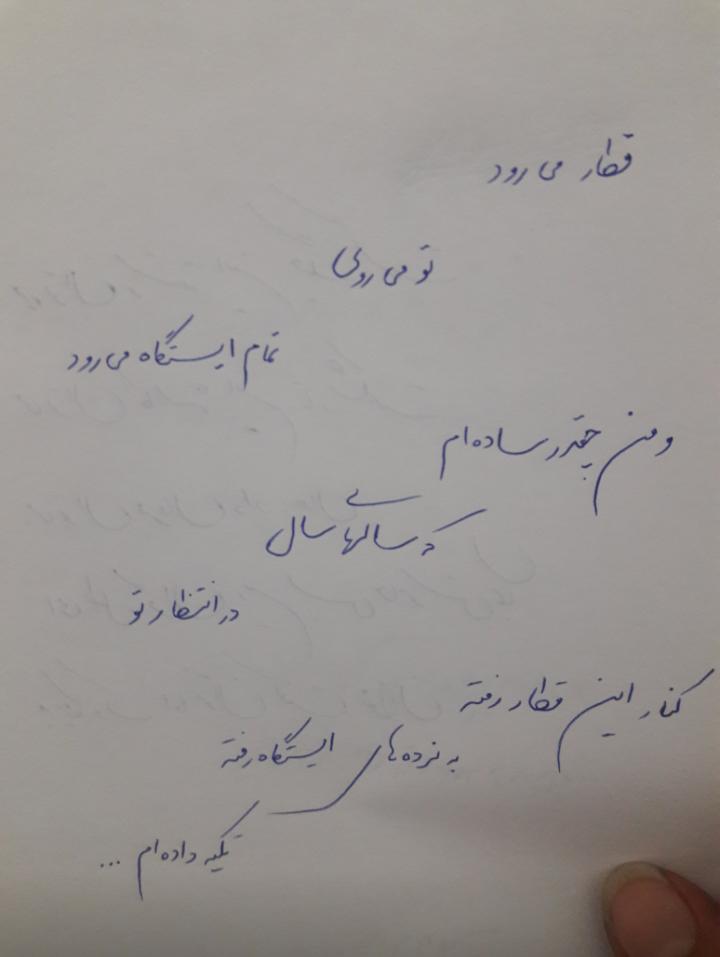 قطار می رود
تو می روی
تمام ایستگاه می رود
و من چقدر ساده ام
که سالهای سال
در انتظار تو
کنار این قطار رفته
به نرده های ایستگاه رفته
تکیه داده ام ...